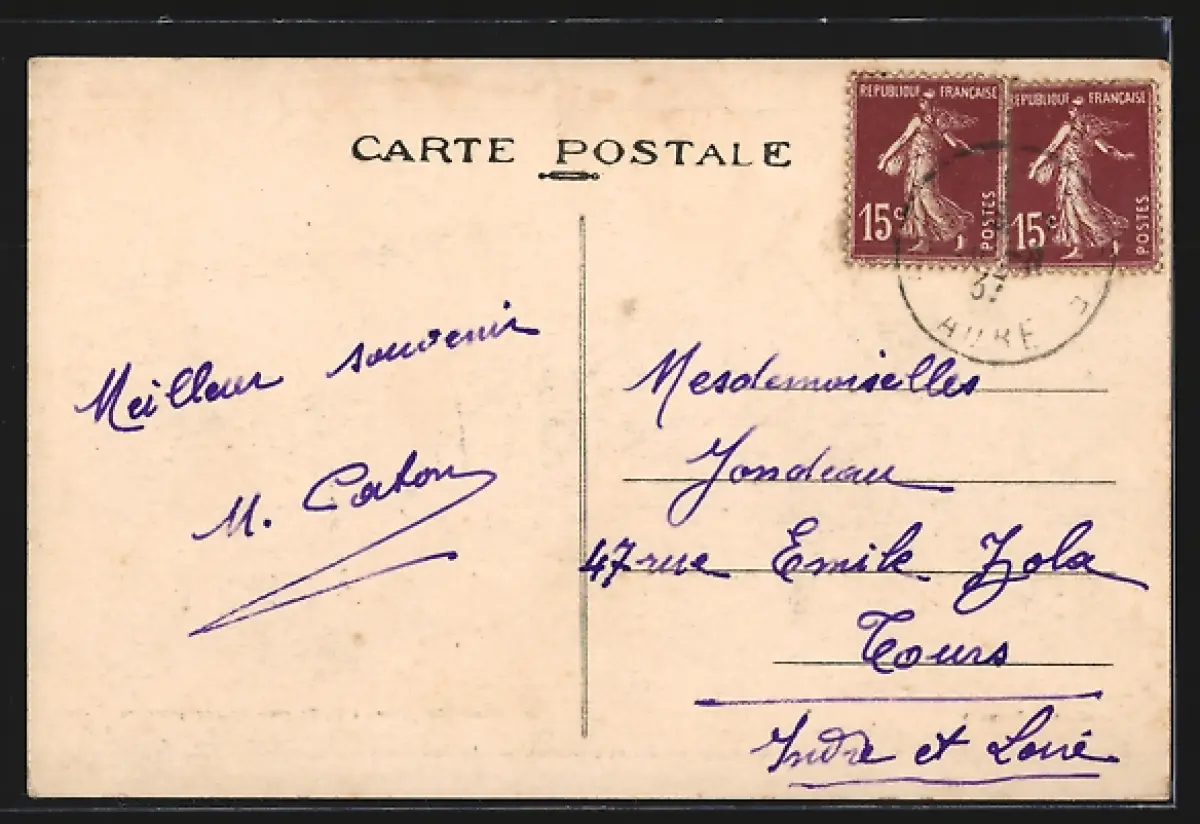 CARTE POSTALE
REPUBLIQUE FRANÇAISE
15c POSTES
REPUBLIQUE FRANÇAISE
15c POSTES
37
Meilleur souvenir
M. Caton
Mesdemoiselles
Jondeau
47 rue Emile Zola
Tours
Indre et Loire